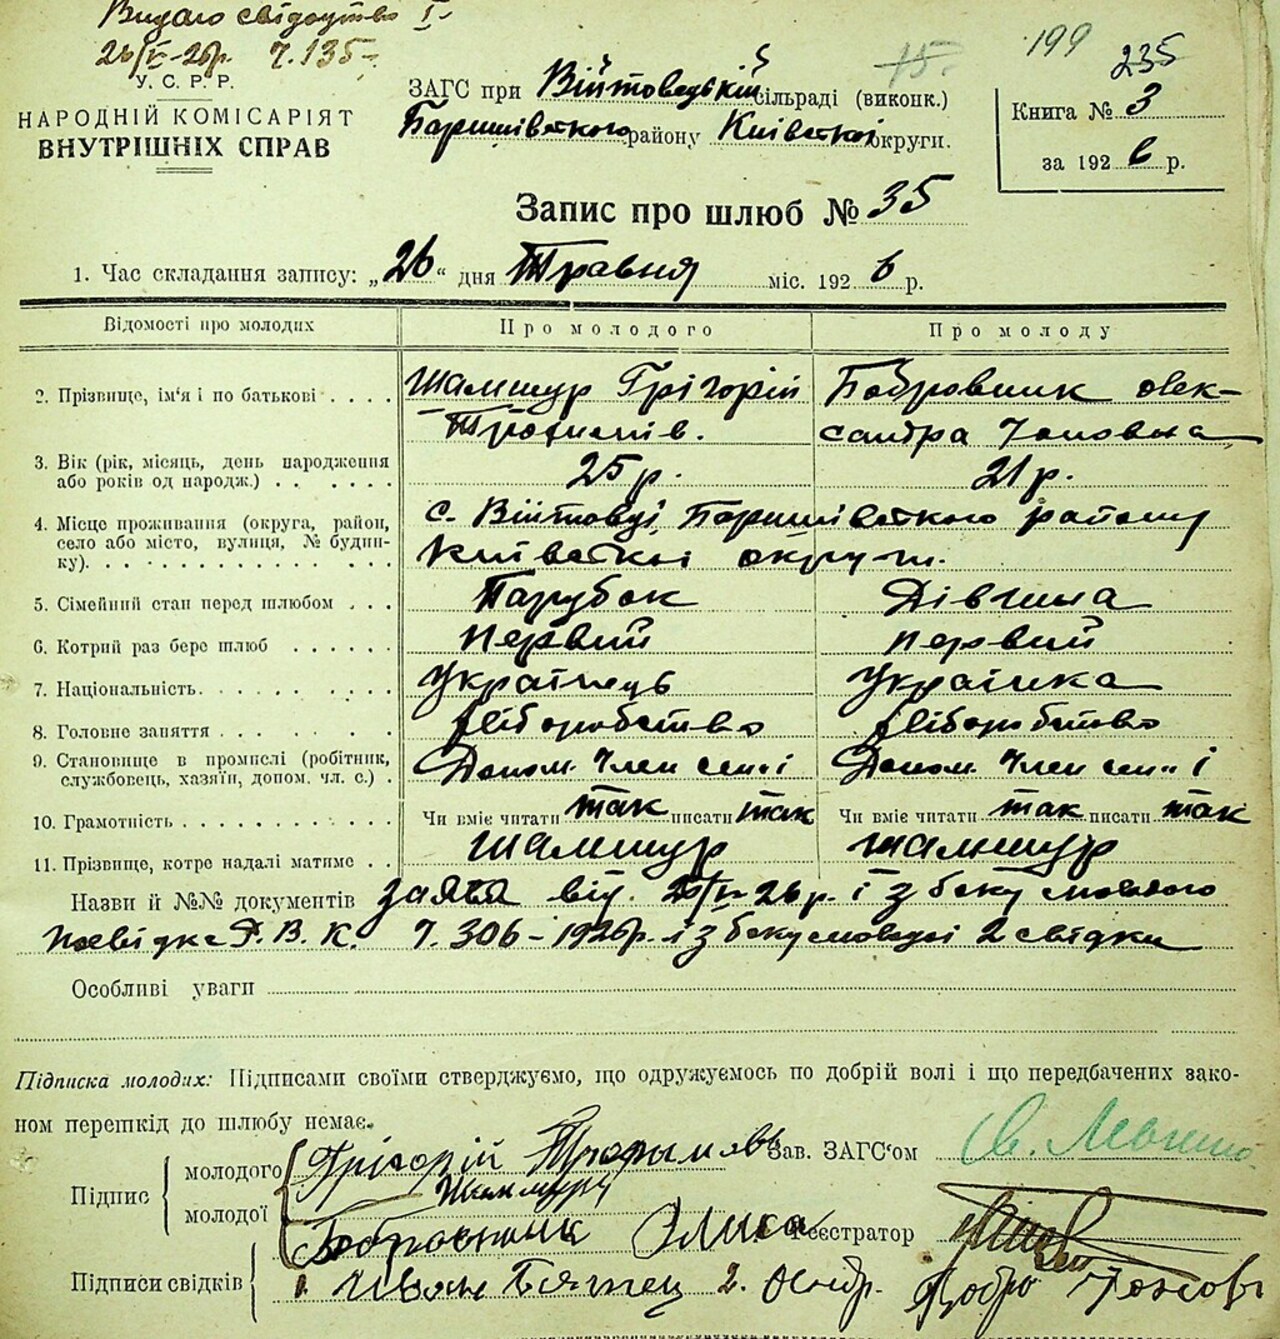 Видаго свідоцтво
26/V-26р. Ч.135
У. С. Р. Р.
НАРОДНІЙ КОМІСАРІЯТ
ВНУТРІШНІХ СПРАВ
ЗАГС при Війтовецькій сільраді (виконк.)
Баришівського району Київської округи.
15.
199
235
Книга № 3
за 1926 р.
Запис про шлюб № 35
1. Час складання запису: „26“ дня Травня міс. 1926 р.
Відомості про молодих Про молодого Про молоду
2. Прізвище, ім'я і по батькові . . . . Шамшур Грігорій Бобровник Олек-
Трофимів. сандра
3. Вік (рік, місяць, день народження
або років од народж.) . . . . . . 25 р. 21 р.
4. Місце проживання (округа, район, с. Війтовці, Баришівського району
село або місто, вулиця, № будин- Київської округи.
ку). . . . . . . . . . . . . .
5. Сімейний стан перед шлюбом . . . Парубок Дівчина
6. Котрий раз бере шлюб . . . . . . Первий Первий
7. Національність. . . . . . . . . Українець Українка
8. Головне заняття . . . . . . . . Хліборобство Хліборобство
9. Становище в промислі (робітник,
службовець, хазяїн, допом. чл. с.) . Допом. член семі Допом. член семі
10. Грамотність . . . . . . . . . . . Чи вміє читати так писати так Чи вміє читати так писати так
11. Прізвище, котре надалі матиме . . Шамшур Шамшур
Назви й №№ документів заява від. і з боку молодого
посвідка Р.В.К. Ч. 306-1926р. і з боку молодої 2 свідки
Особливі уваги
Підписка молодих: Підписами своїми стверджуємо, що одружуємось по добрій волі і що передбачених зако-
ном перешкід до шлюбу немає.
Підпис молодого Грігорій Трофымовь Зав. ЗАГС'ом
Шамшур
молодої Бобровник Реєстратор
Підписи свідків 1. Иван 2.